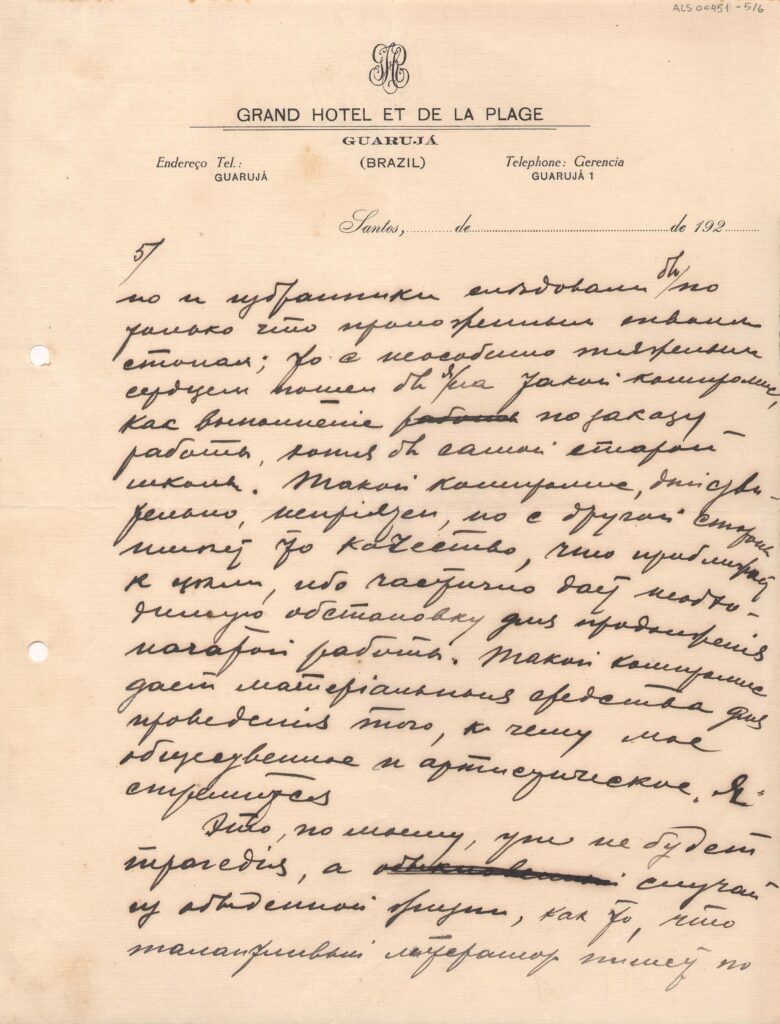 ALS00451-5/6
GRAND HOTEL ET DE LA PLAGE
GUARUJÁ
(BRAZIL)
Endereço Tel.:
GUARUJÁ
Telephone: Gerencia
GUARUJÁ 1
Santos, de de 192
5/
но и избранники следовали бы по
только что проложенным твоим
стопам; то с неособенно тяжелым
сердцем пошел бы я на такой компромис,
как выполнение работы по заказу
работы, хотя бы самой старой
школы. Такой компромис, действи-
тельно, неприязен, но с другой стороны
имеет то качество, что приближает
к цели, ибо частично дает необхо-
димую обстановку для продолженія
начатой работы. Такой компромис
дает матеріальныя средства для
проведенія того, к чему мое
общественное и артистическое "Я"
стремится
Это, по моему, уже не будет
трагедія, а обыкновенный случай
из обыденной жизни, как то, что
талантливый литератор пишет по